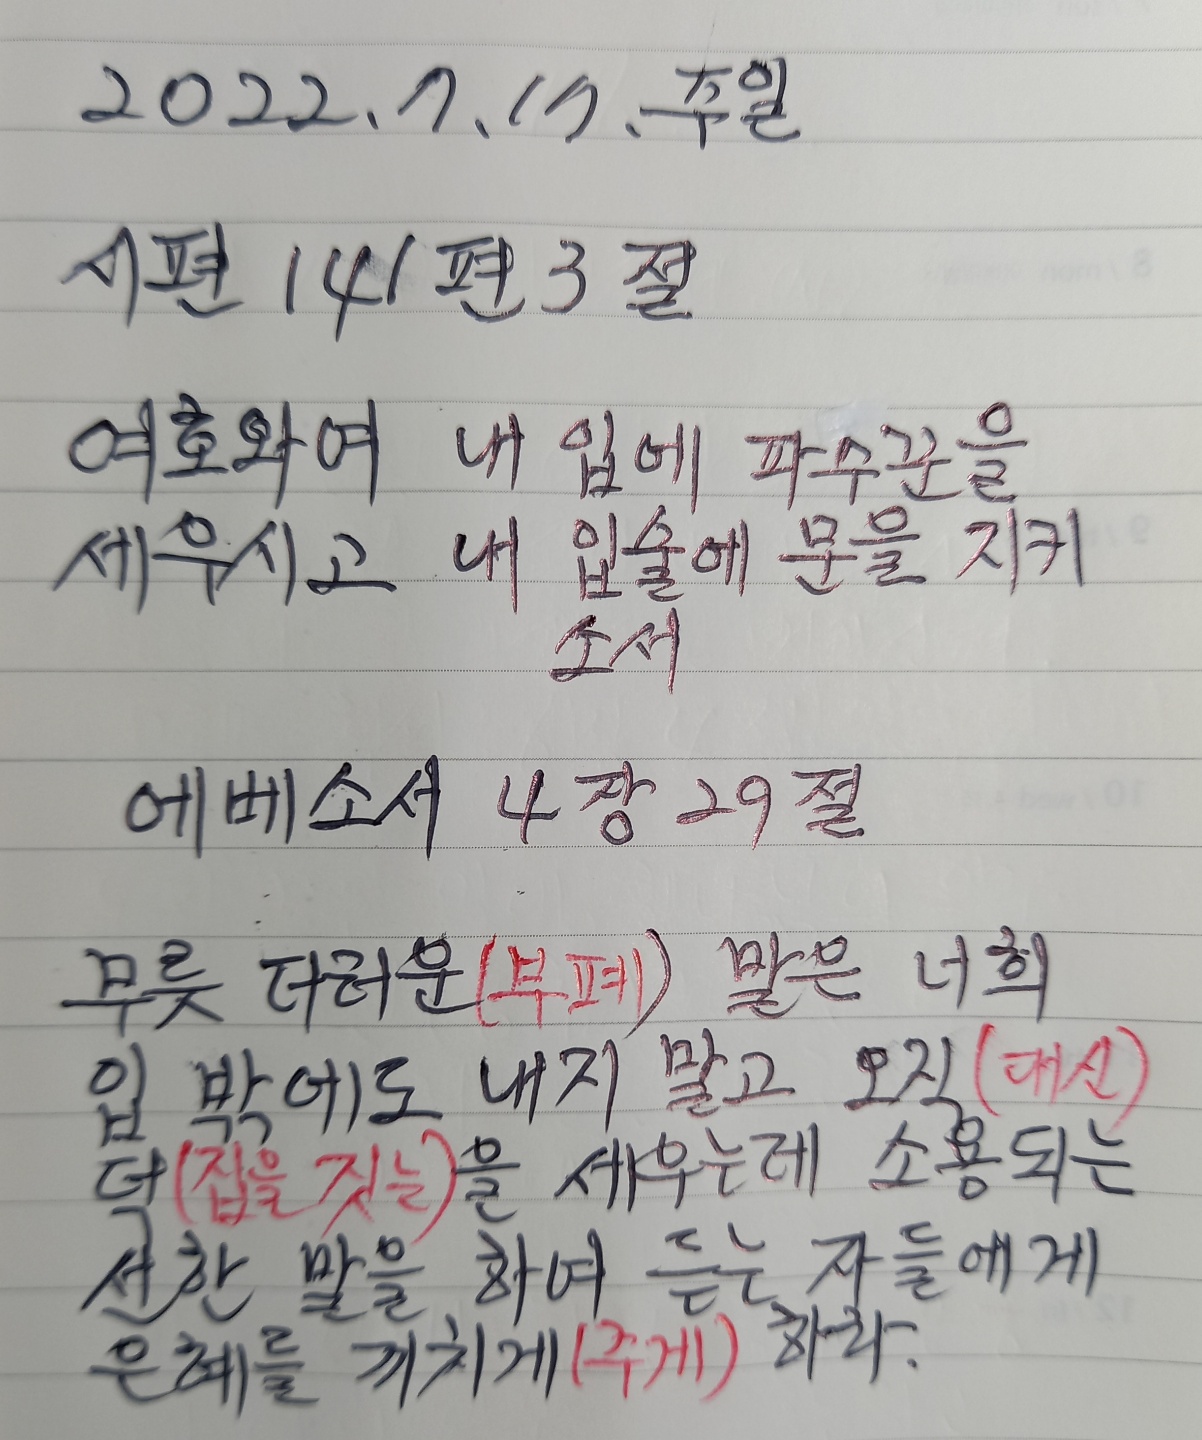 2022.7.17.주일
시편 141편 3절
여호와여 내 입에 파수꾼을
세우시고 내 입술에 문을 지키
소서
에베소서 4장 29절
무릇 더러운(부패) 말은 너희
입 밖에도 내지 말고 오직(대신)
덕(집을 짓는)을 세우는데 소용되는
선한 말을 하여 듣는 자들에게
은혜를 끼치게(주게) 하라.